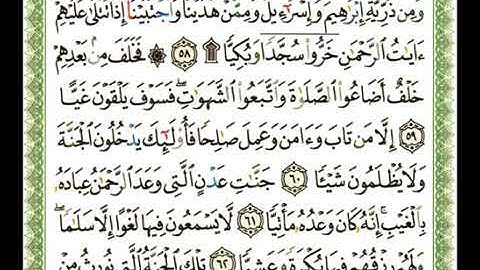 وَمِن ذُرِّيَّةِ إِبْرَٰهِيمَ وَإِسْرَٰٓءِيلَ وَمِمَّنْ هَدَيْنَا وَٱجْتَبَيْنَآ إِذَا تُتْلَىٰ عَلَيْهِمْ
ءَايَٰتُ ٱلرَّحْمَٰنِ خَرُّوا۟ سُجَّدًا وَبُكِيًّا ۩ ٥٨ فَخَلَفَ مِنۢ بَعْدِهِمْ
خَلْفٌ أَضَاعُوا۟ ٱلصَّلَوٰةَ وَٱتَّبَعُوا۟ ٱلشَّهَوَٰتِ ۖ فَسَوْفَ يَلْقَوْنَ غَيًّا
٥٩ إِلَّا مَن تَابَ وَءَامَنَ وَعَمِلَ صَٰلِحًا فَأُو۟لَٰٓئِكَ يَدْخُلُونَ ٱلْجَنَّةَ
وَلَا يُظْلَمُونَ شَيْـًٔا ٦٠ جَنَّٰتِ عَدْنٍ ٱلَّتِى وَعَدَ ٱلرَّحْمَٰنُ عِبَادَهُۥ
بِٱلْغَيْبِ ۚ إِنَّهُۥ كَانَ وَعْدُهُۥ مَأْتِيًّا ٦١ لَّا يَسْمَعُونَ فِيهَا لَغْوًا إِلَّا سَلَٰمًا ۖ
وَلَهُمْ رِزْقُهُمْ فِيهَا بُكْرَةً وَعَشِيًّا ٦٢ تِلْكَ ٱلْجَنَّةُ ٱلَّتِى نُورِثُ مِنْ